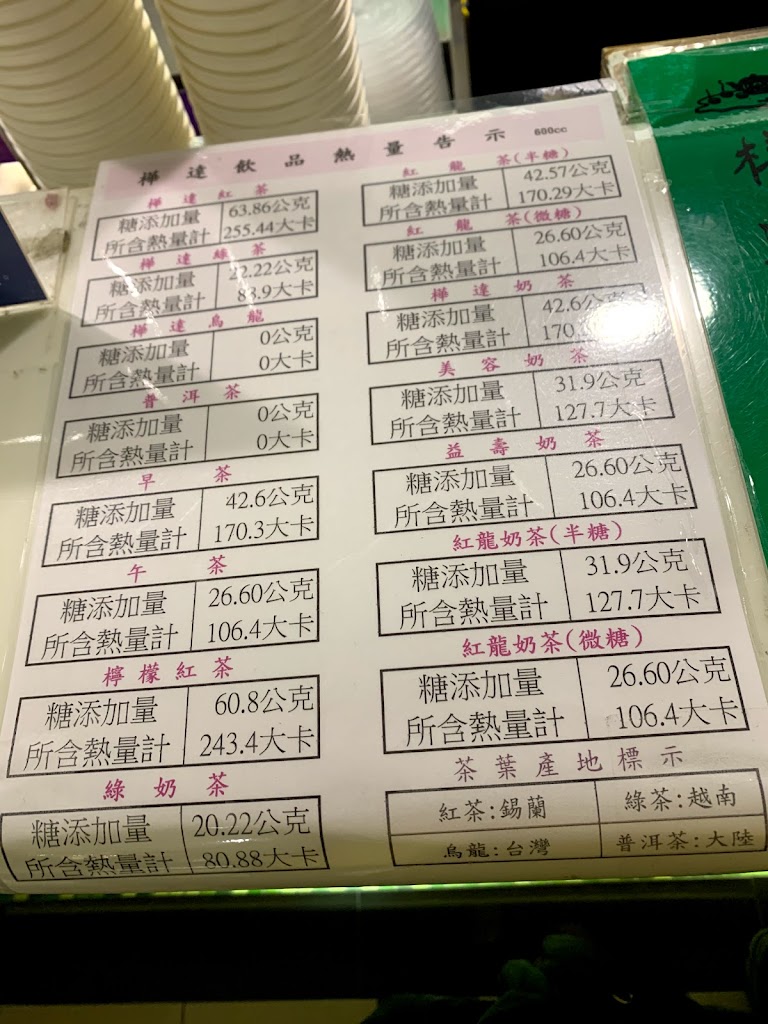 樺達飲品熱量告示 600cc
樺達紅茶
糖添加量 63.86公克
所含熱量計 255.44大卡
樺達綠茶
糖添加量 22.22公克
所含熱量計 88.9大卡
樺達烏龍
糖添加量 0公克
所含熱量計 0大卡
普洱茶
糖添加量 0公克
所含熱量計 0大卡
早茶
糖添加量 42.6公克
所含熱量計 170.3大卡
午茶
糖添加量 26.60公克
所含熱量計 106.4大卡
檸檬紅茶
糖添加量 60.8公克
所含熱量計 243.4大卡
綠奶茶
糖添加量 20.22公克
所含熱量計 80.88大卡
紅龍茶(半糖)
糖添加量 42.57公克
所含熱量計 170.29大卡
紅龍茶(微糖)
糖添加量 26.60公克
所含熱量計 106.4大卡
樺達奶茶
糖添加量 42.6公克
所含熱量計 170.
美容奶茶
糖添加量 31.9公克
所含熱量計 127.7大卡
益壽奶茶
糖添加量 26.60公克
所含熱量計 106.4大卡
紅龍奶茶(半糖)
糖添加量 31.9公克
所含熱量計 127.7大卡
紅龍奶茶(微糖)
糖添加量 26.60公克
所含熱量計 106.4大卡
茶葉產地標示
紅茶:錫蘭 綠茶:越南
烏龍:台灣 普洱茶:大陸